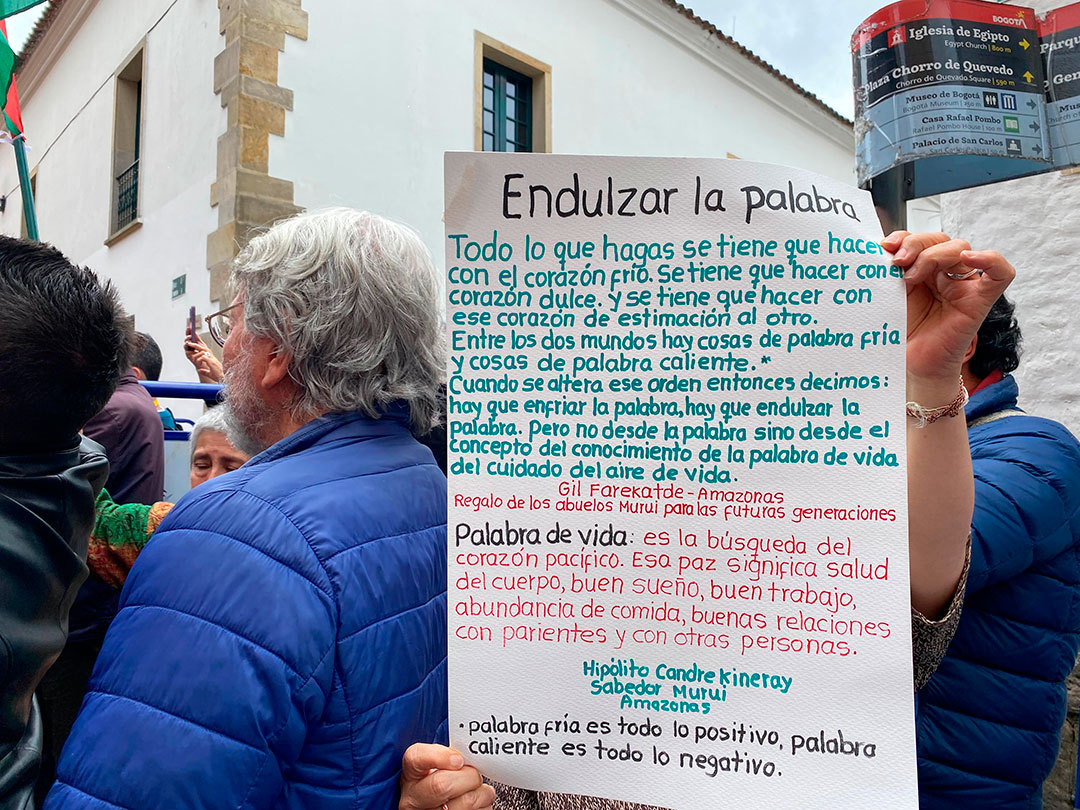 BOGOTÁ
Iglesia de Egipto
Egypt Church | 800 m
Plaza Chorro de Quevedo
Chorro de Quevedo Square | 590 m
Museo de Bogotá
Bogotá Museum | 250 m
Casa Rafael Pombo
Rafael Pombo House | 100 m
Palacio de San Carlos
Parqu
Gen
Endulzar la palabra
Todo lo que hagas se tiene que hacer
con el corazón frío. Se tiene que hacer con e
corazón dulce. y se tiene que hacer con
ese corazón de estimación al otro.
Entre los dos mundos hay cosas de palabra fría
y cosas de palabra caliente.*
Cuando se altera ese orden entonces decimos:
hay que enfriar la palabra, hay que endulzar la
palabra. Pero no desde la palabra sino desde el
concepto del conocimiento de la palabra de vida
del cuidado del aire de vida.
Gil Farekatde - Amazonas
Regalo de los abuelos Murui para las futuras generaciones
Palabra de vida: es la búsqueda del
corazón pacífico. Esa paz significa salud
del cuerpo, buen sueño, buen trabajo,
abundancia de comida, buenas relaciones
con parientes y con otras personas.
Hipólito Candre Kineray
Sabedor Murui
Amazonas
• palabra fría es todo lo positivo, palabra
caliente es todo lo negativo.